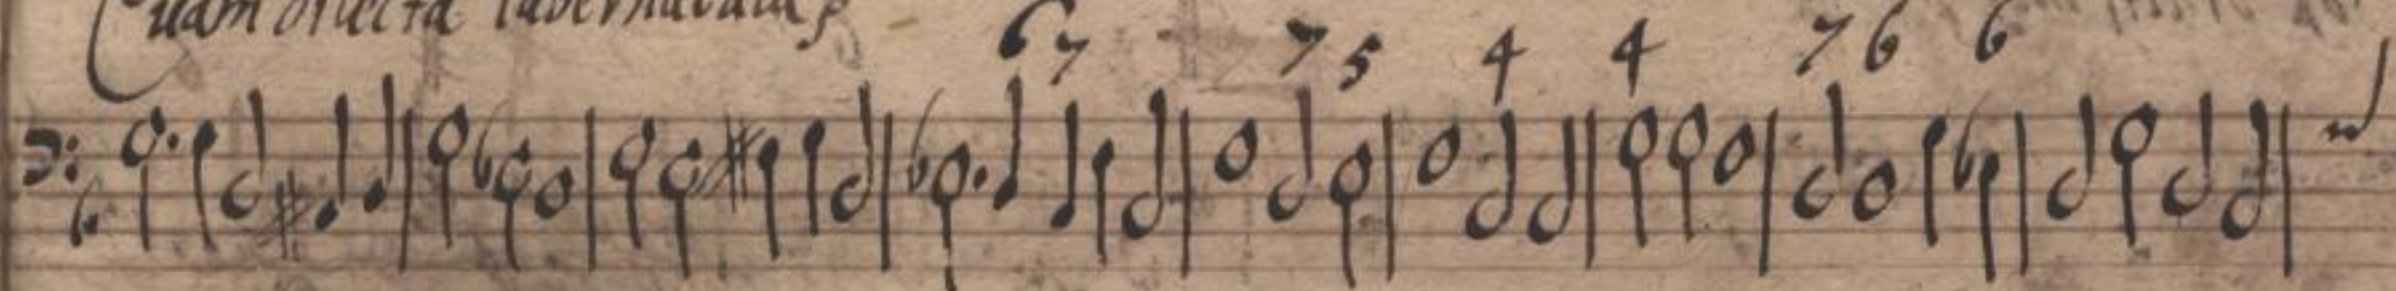 Quam dilecta tabernacula
6 7 7 5 4 4 7 6 6